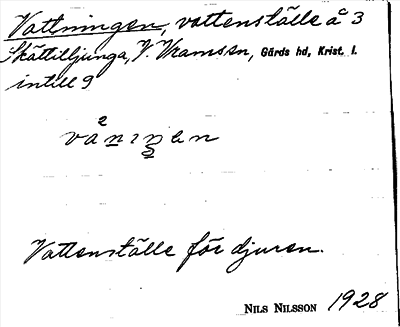 Vattningen, vattenställe å 3
Skättilljunga, V. Vramsen, Gärds hd, Krist. l.
intill 9
Vattenställe för djuren.
NILS NILSSON 1928